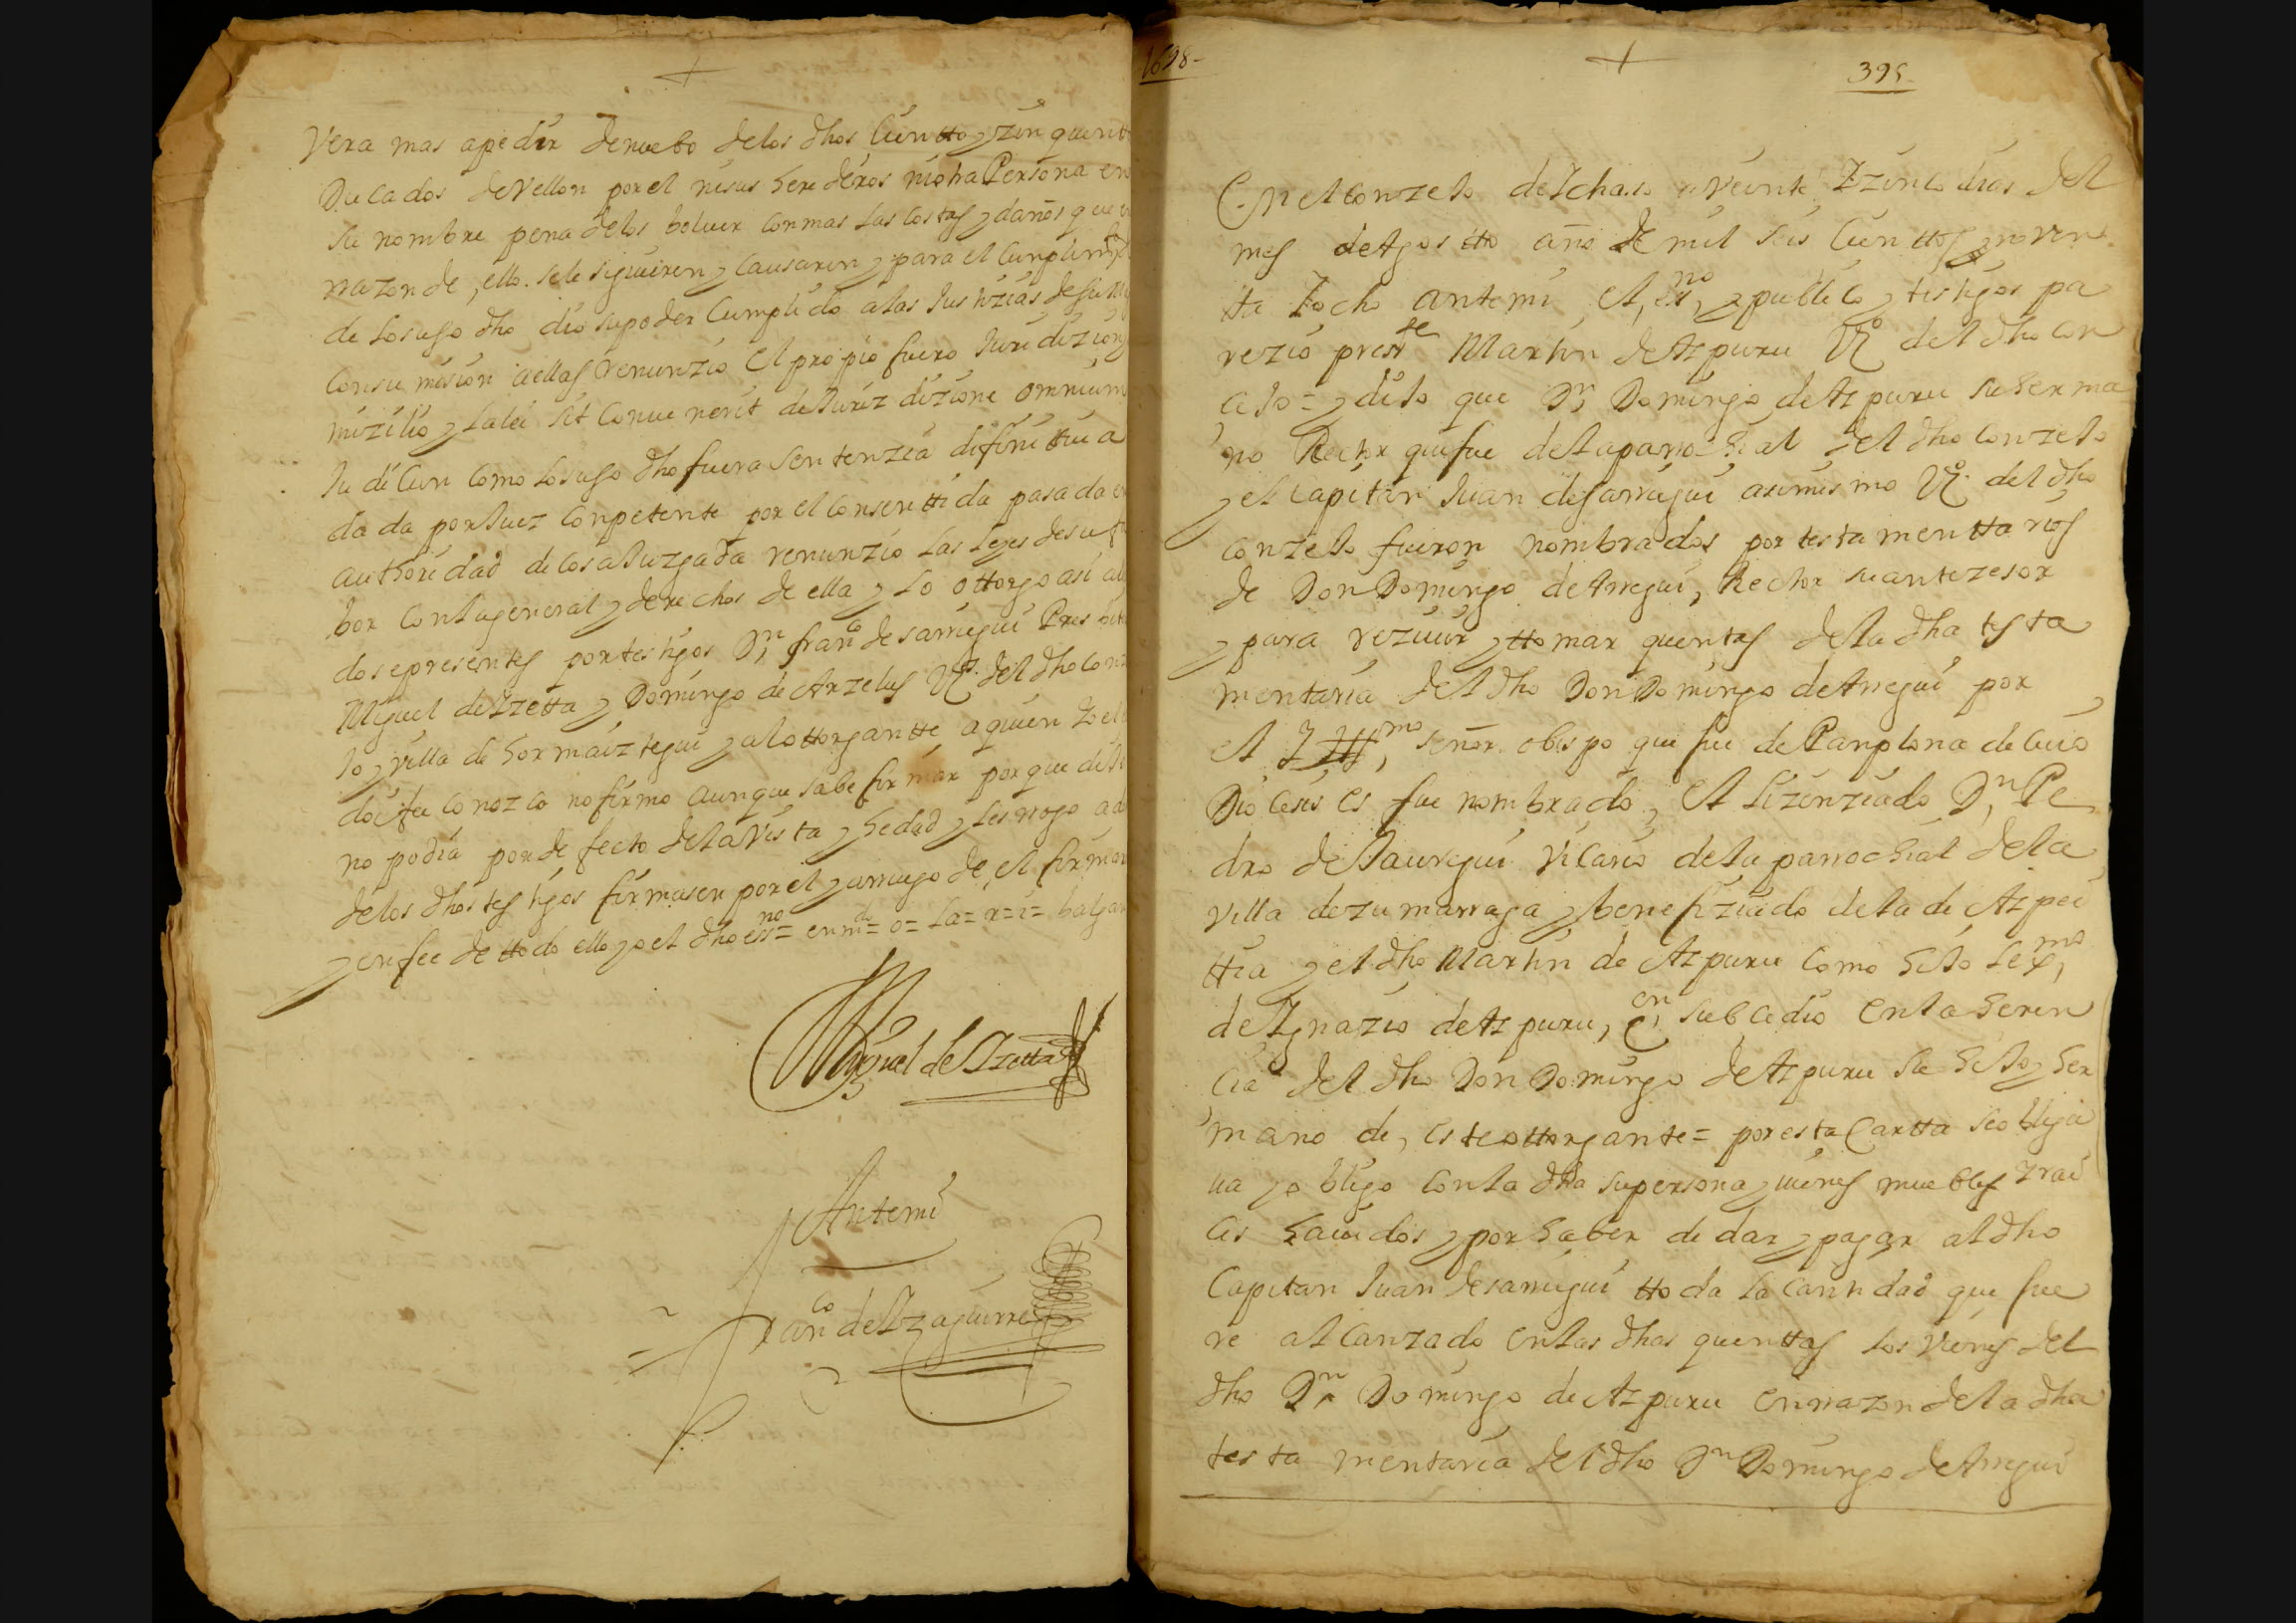 +
Vera mas apedir denuebo delos dhos Cientto y zinquent
Ducados devellon por el ni sus herederos ni otra Persona en
su nombre pena delos boluer con mas las costas y daños que
rrazon de ello. sele siguieren y causaren y para el Cunplim
de lo suso dho dio su poder Cumplido a las Justizias de su
Consu mision aellas renunzio el propio fuero Juridizion
mizilio y la lei sit conuenerit de Jurizdizione omnium
Judicun como lo suso dho fuera sentenzia difinittiua
dada por Juez conpetente por el consenttida pasada en
authoridad de cosa Juzgada renunzio las leyes de su fa
bor con la general y derechos de ella y lo ottorgo asi
dose presentes por testigos Dn franco de sarregui Presbit
Miguel de Izetta y Domingo de Arzelus Vs. del dho con
jo y villa de hormaiztegui y al ottorgantte a quien Yo el
doi fee conozco no firmo aunque sabe firmar porque dijo
no podia por defecto de la vista y hedad y les rrogo a
de los dhos testigos firmasen por el y a rruego de el firmar
y en fee de ttodo ello yo el dho essno = enmdo = o = la = r = i = balgan
Miguel de Izetta
Antemi
Franco de Yzaguirre
1698-
+
395
En el conzejo de Ychaso a Veinte Y zinco dias del
mes de Agostto año de mil seis Cienttos y noven
tta Y ocho antemi el, esno, y publico y testigos pa
rezio presте Martin de Azpuru Vo del dho con
cejo = y dijo que Dn Domingo de Azpuru su herma
no Rector que fue de la parrochial del dho conzejo
y el Capitan Juan de sarregui asimismo Vo. del dho
conzejo fueron nombrados por testamenttarios
de Don Domingo de Arregui, Rector su antezesor
y para rezivir y ttomar quentas de la dha testa
mentaria del dho Don Domingo de Arregui por
el Yllmo, señor obispo que fue de Panplona de cuio
Diocesis es fue nombrado, el lizenziado Dn Pe
dro de Jauregui Vicario de la parrochial de la
villa de zumarraga y benefiziado de la de Azpei
ttia y el dho Martin de Azpuru como hijo lexmo,
de Ygnazio de Azpuru, en, subcedio en la heren
cia del dho Don Domingo de Azpuru su hijo y her
mano de, este ottorgante = por esta Cartta se obliga
ua y obligo con la dha su persona y uienes muebles y rai
ces hauidos y por haber de dar y pagar al dho
Capitan Juan de sarregui ttoda la cantidad que fue
re alcanzado en las dhas quenttas los vienes del
dho Dn Domingo de Azpuru en rrazon de la dha
testamentaria del dho Dn Domingo de Arregui